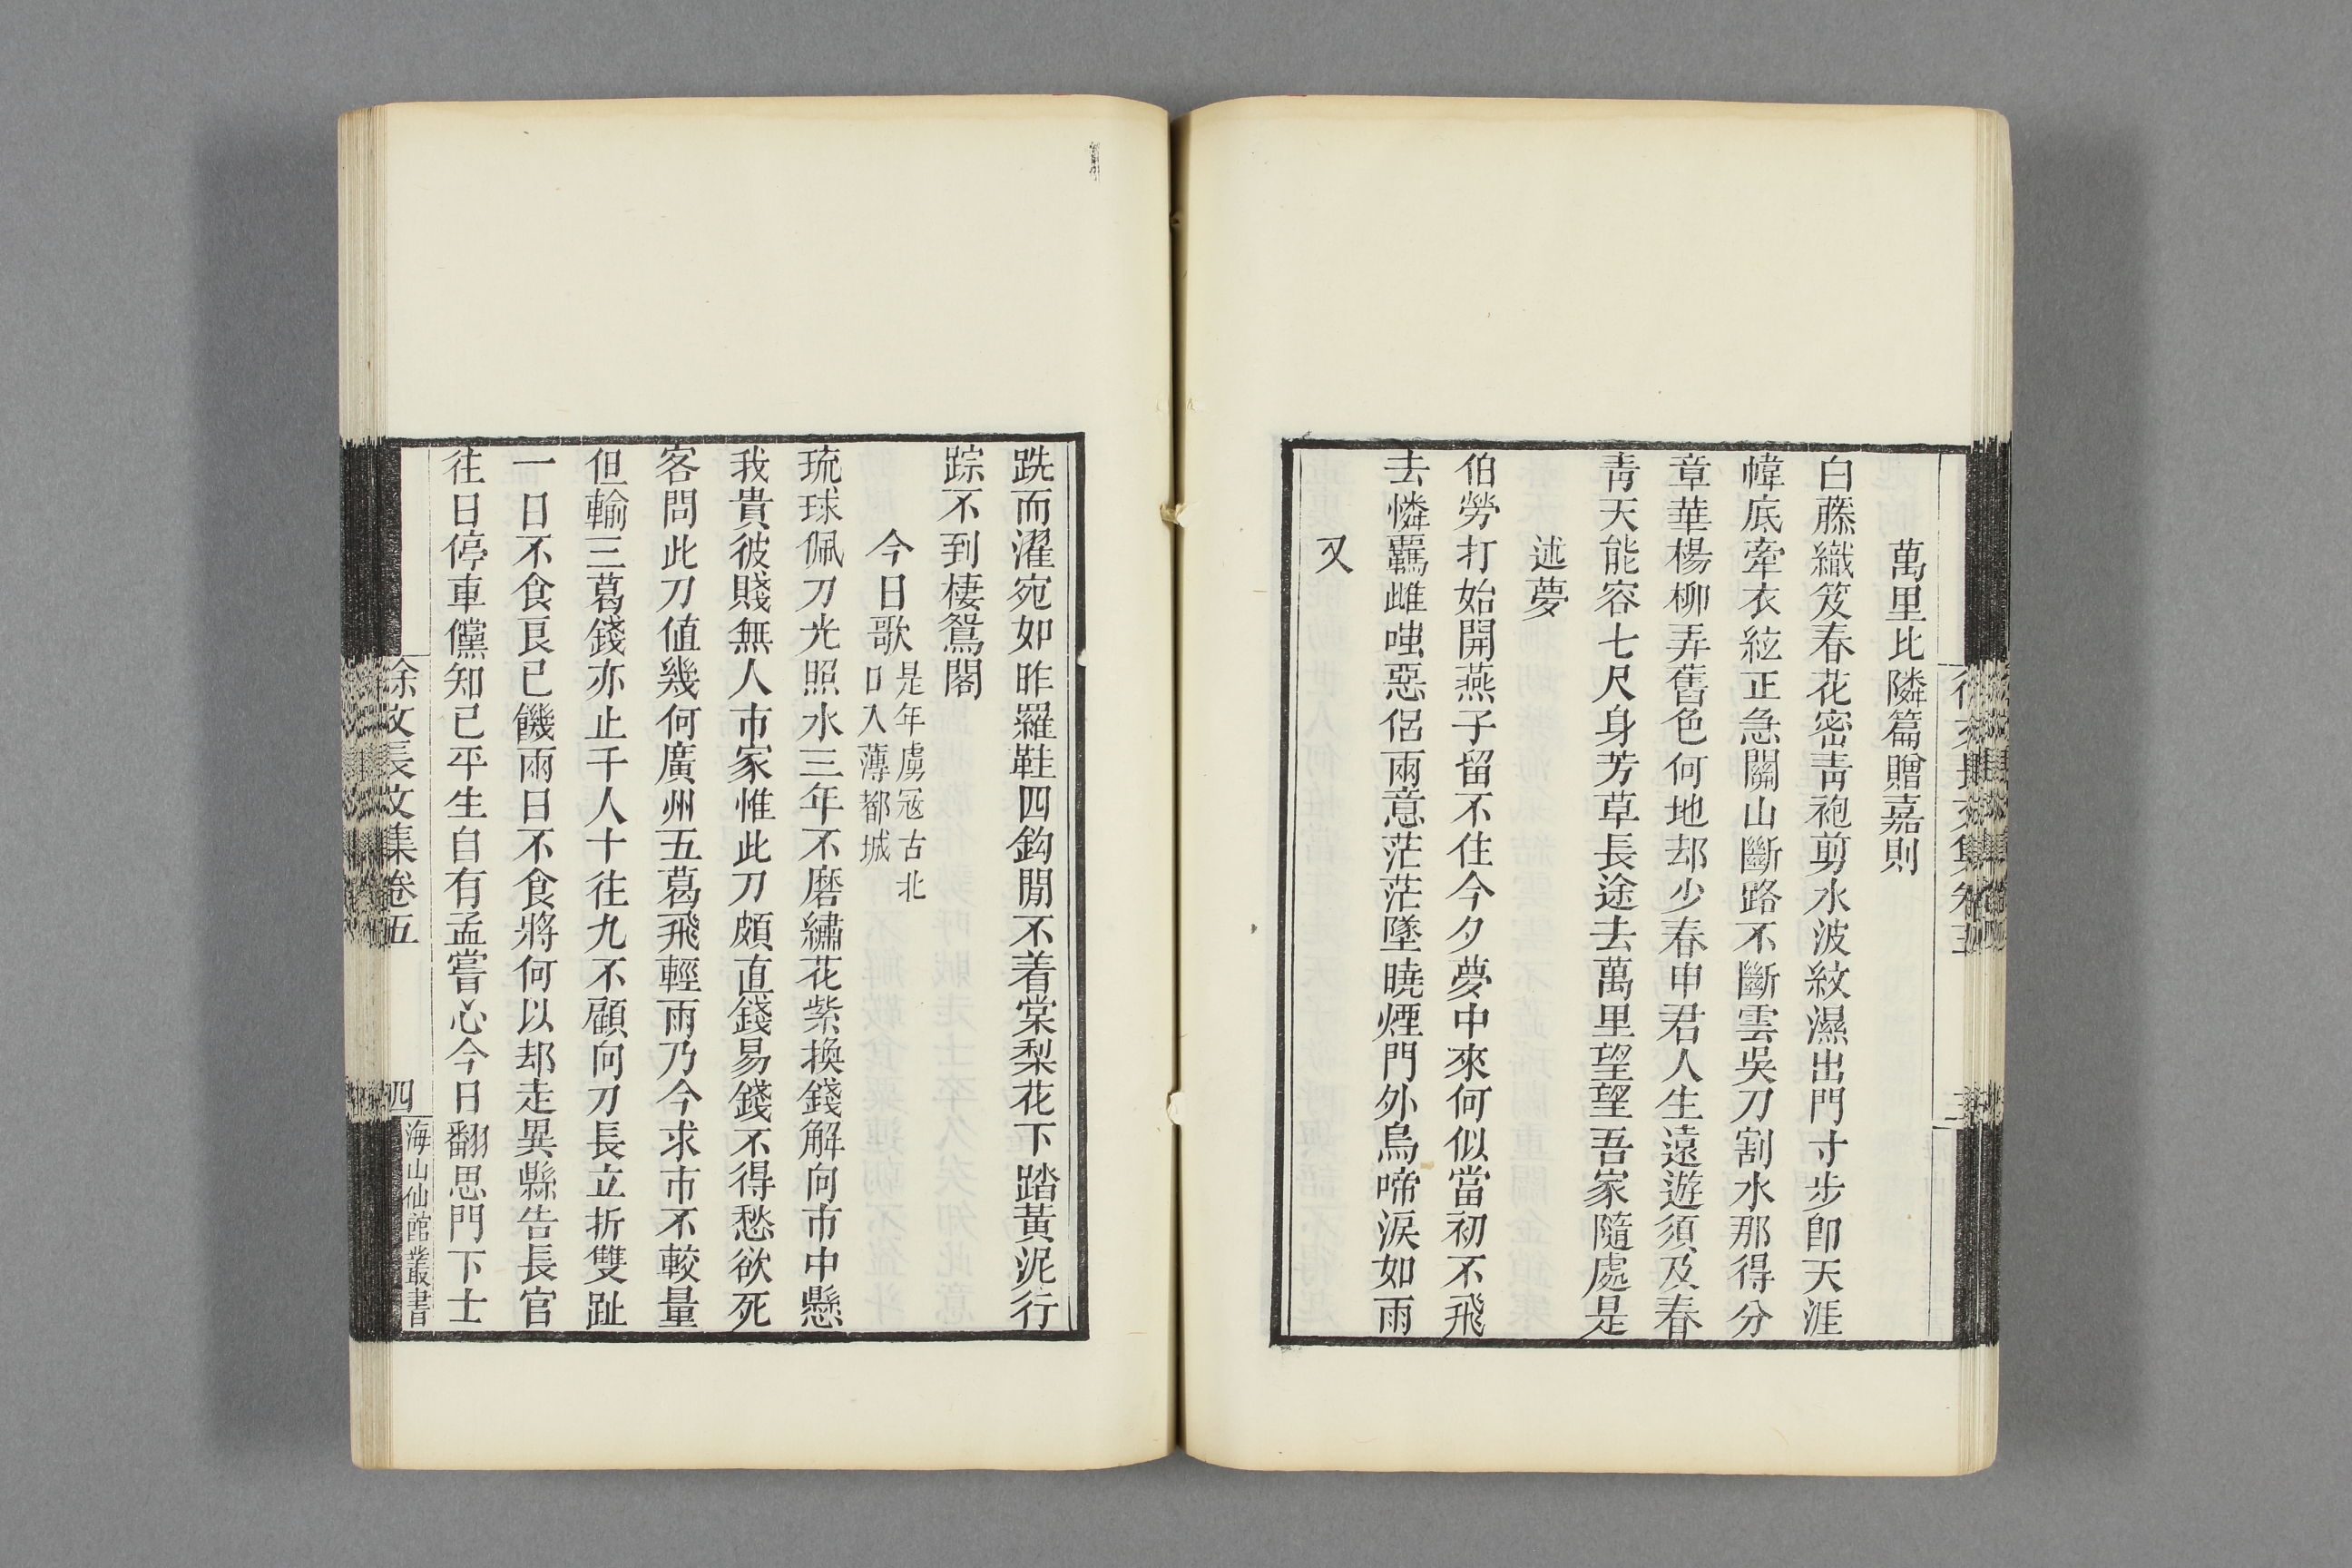 萬里比隣篇贈嘉則
白藤織笈春花密靑袍剪水波紋濕出門寸步卽天涯
幃底牽衣絃正急關山斷路不斷雲吳刀割水那得分
章華楊柳弄舊色何地却少春申君人生遠遊須及春
靑天能容七尺身芳草長途去萬里望望吾家隨處是
述夢
伯勞打始開燕子留不住今夕夢中來何似當初不飛
去憐羈雌嗤惡侶兩意茫茫墜曉煙門外烏啼淚如雨
又
跣而濯宛如昨羅鞋四鈎閒不着棠梨花下踏黃泥行
踪不到棲鴛閣
今日歌
是年虜冦古北
口入薄都城
琉球佩刀光照水三年不磨繡花紫換錢解向市中懸
我貴彼賤無人市家惟此刀頗直錢易錢不得愁欲死
客問此刀値幾何廣州五葛飛輕雨乃今求市不較量
但輸三葛錢亦止千人十往九不顧向刀長立折雙趾
一日不食良已饑兩日不食將何以却走異縣告長官
往日停車儻知已平生自有孟嘗心今日翻思門下士
徐文長文集卷五
四
海山仙館叢書